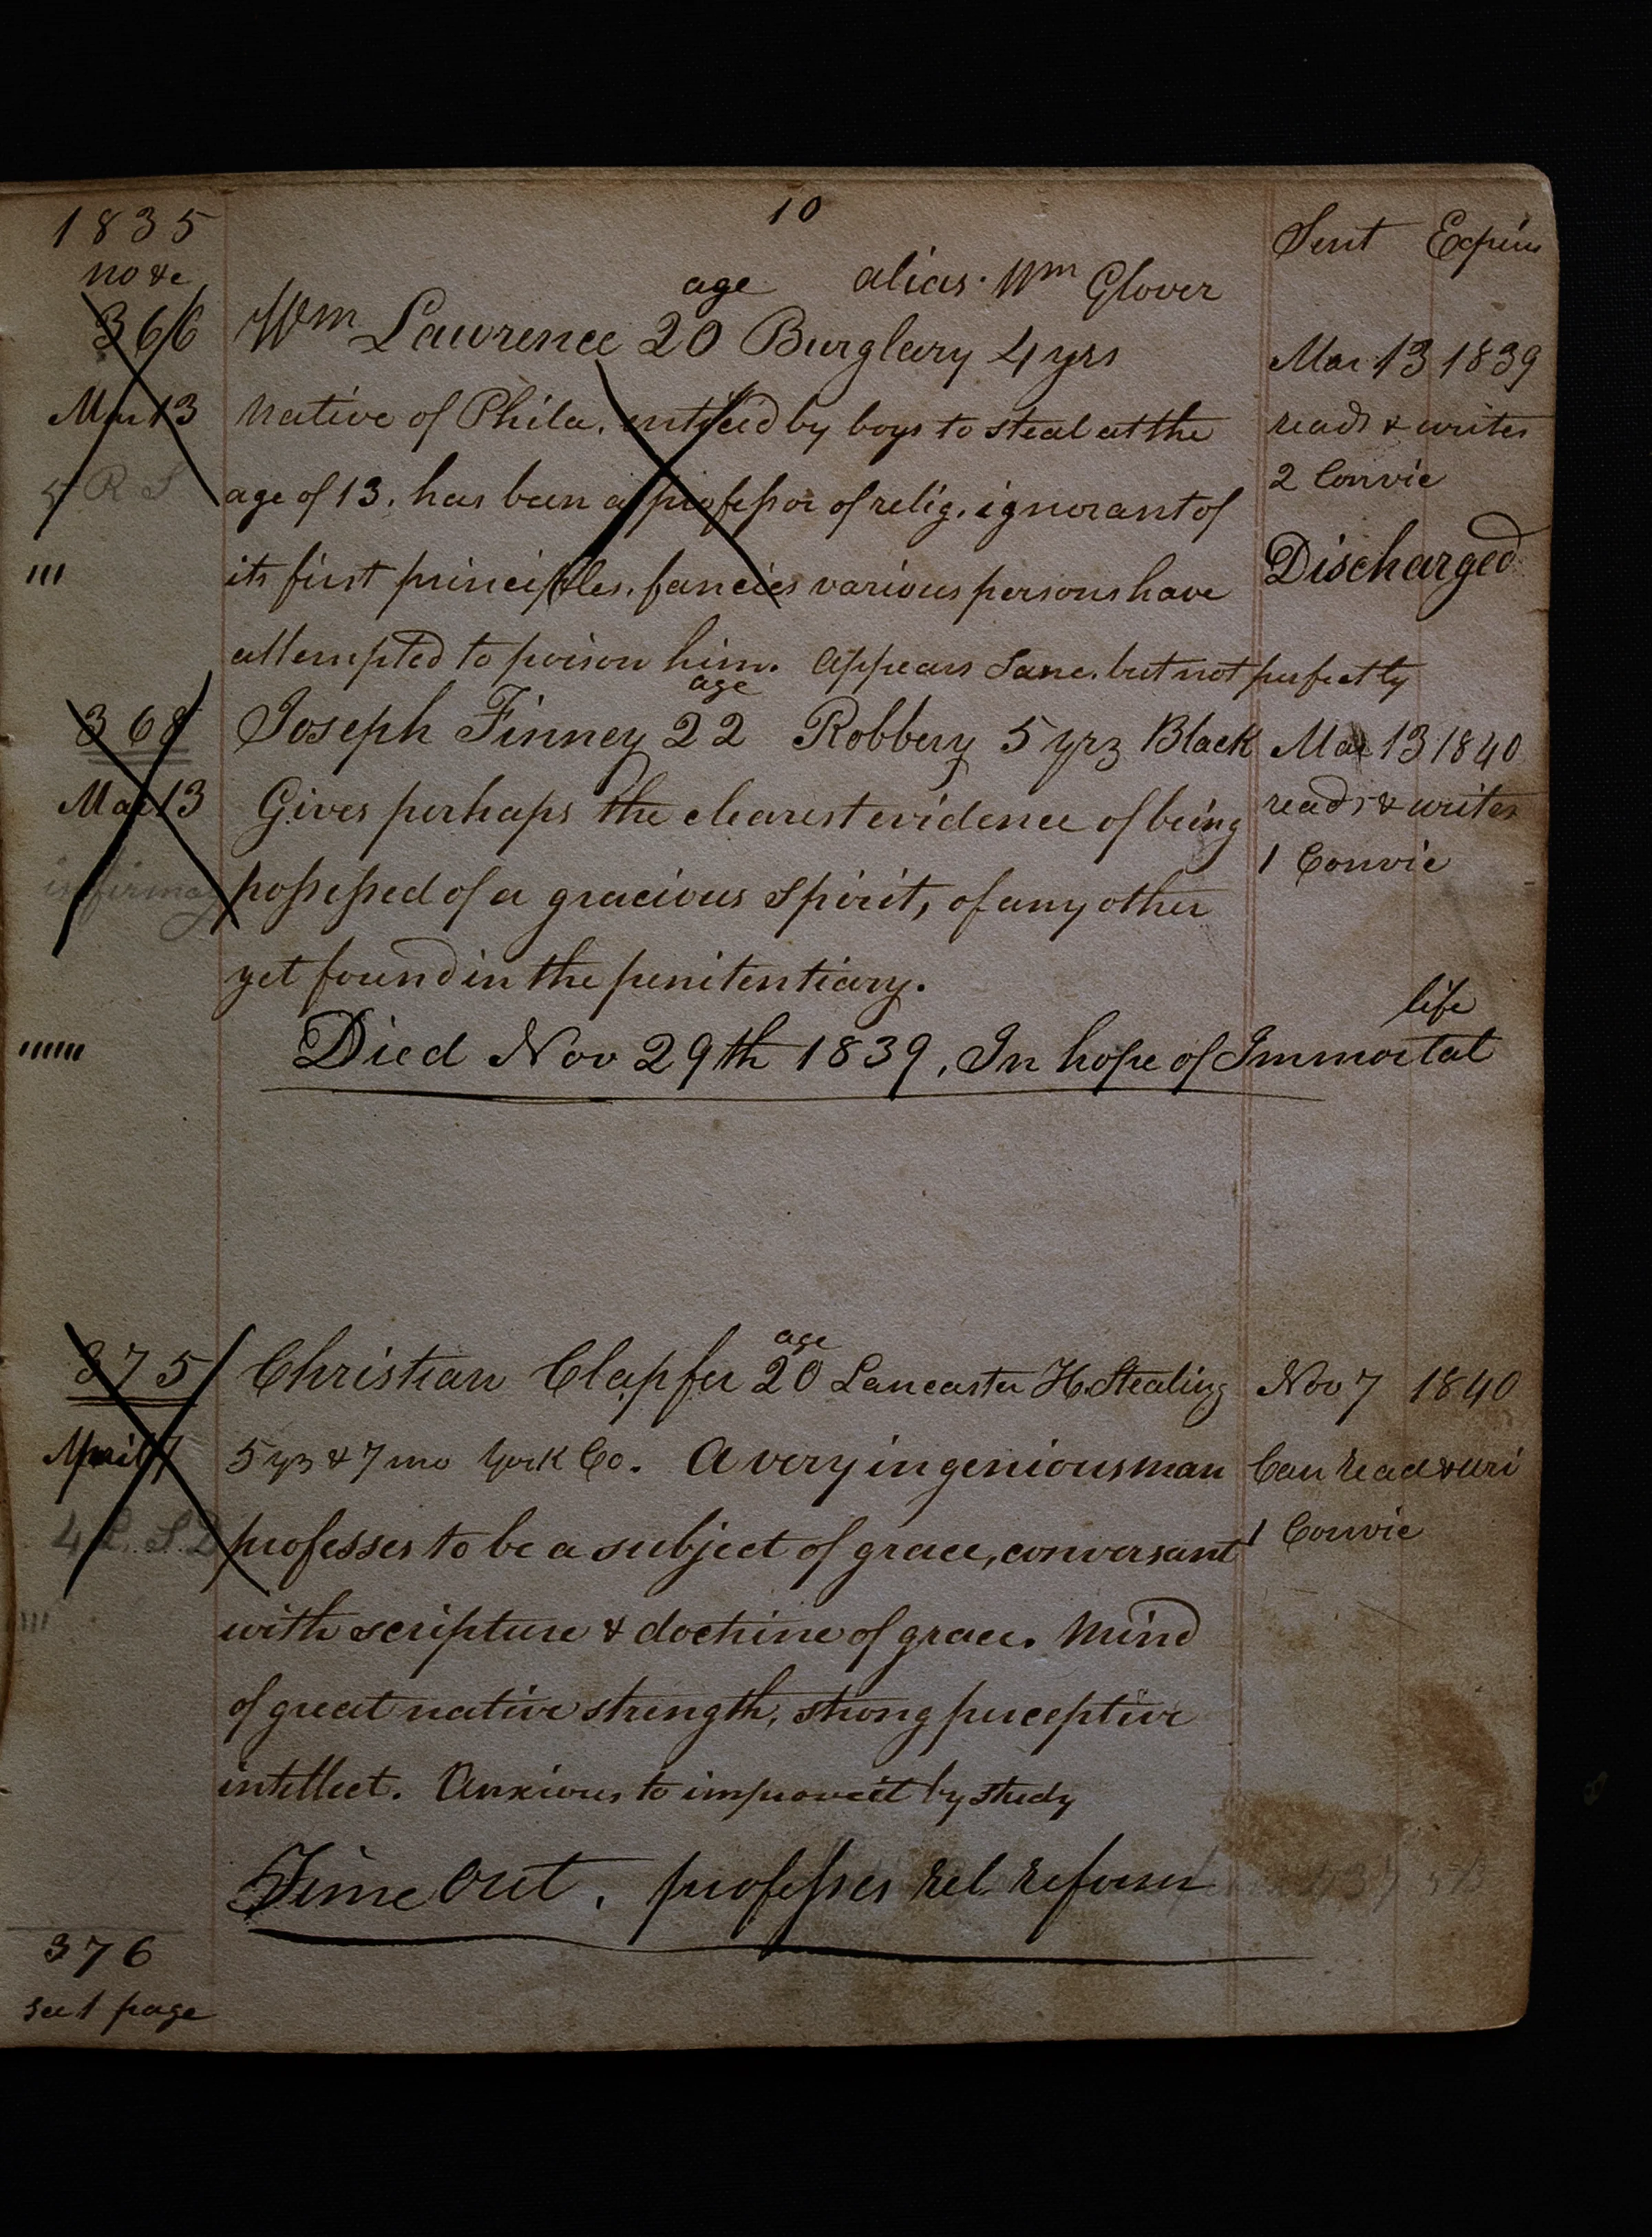 1835
10
Sent Expires
no &c
age alias Wm Glover
366 Wm Lawrence 20 Burglary 4 yrs
Mar 13 1839
Mar 13 Native of Phila. enticed by boys to steal at the
reads & writes
5 R S age of 13. has been a professor of relig. ignorant of
2 Convic
''' its first principles. fancies various persons have
Discharged
attempted to poison him. Appears Sane. but not perfectly
age
368 Joseph Finney 22 Robbery 5 yrs Black Mar 13 1840
Mar 13 Gives perhaps the clearest evidence of being
reads & writes
1 Convic
infirmary possessed of a gracious Spirit, of any other
yet found in the penitentiary.
life
'''''' Died Nov 29th 1839. In hope of Immortal
age
375 Christian Clapfer 20 Lancaster H. Stealing Nov 7 1840
April 7 5 yrs & 7 mo York Co. A very ingenious man Can read & wri
4 S.D professes to be a subject of grace, conversant 1 Convic
'''' with scripture & doctrine of grace. Mind
of great native strength, strong perceptive
intellect. Anxious to improve it by study
Time Out. professes rel. reform
376
see 1 page